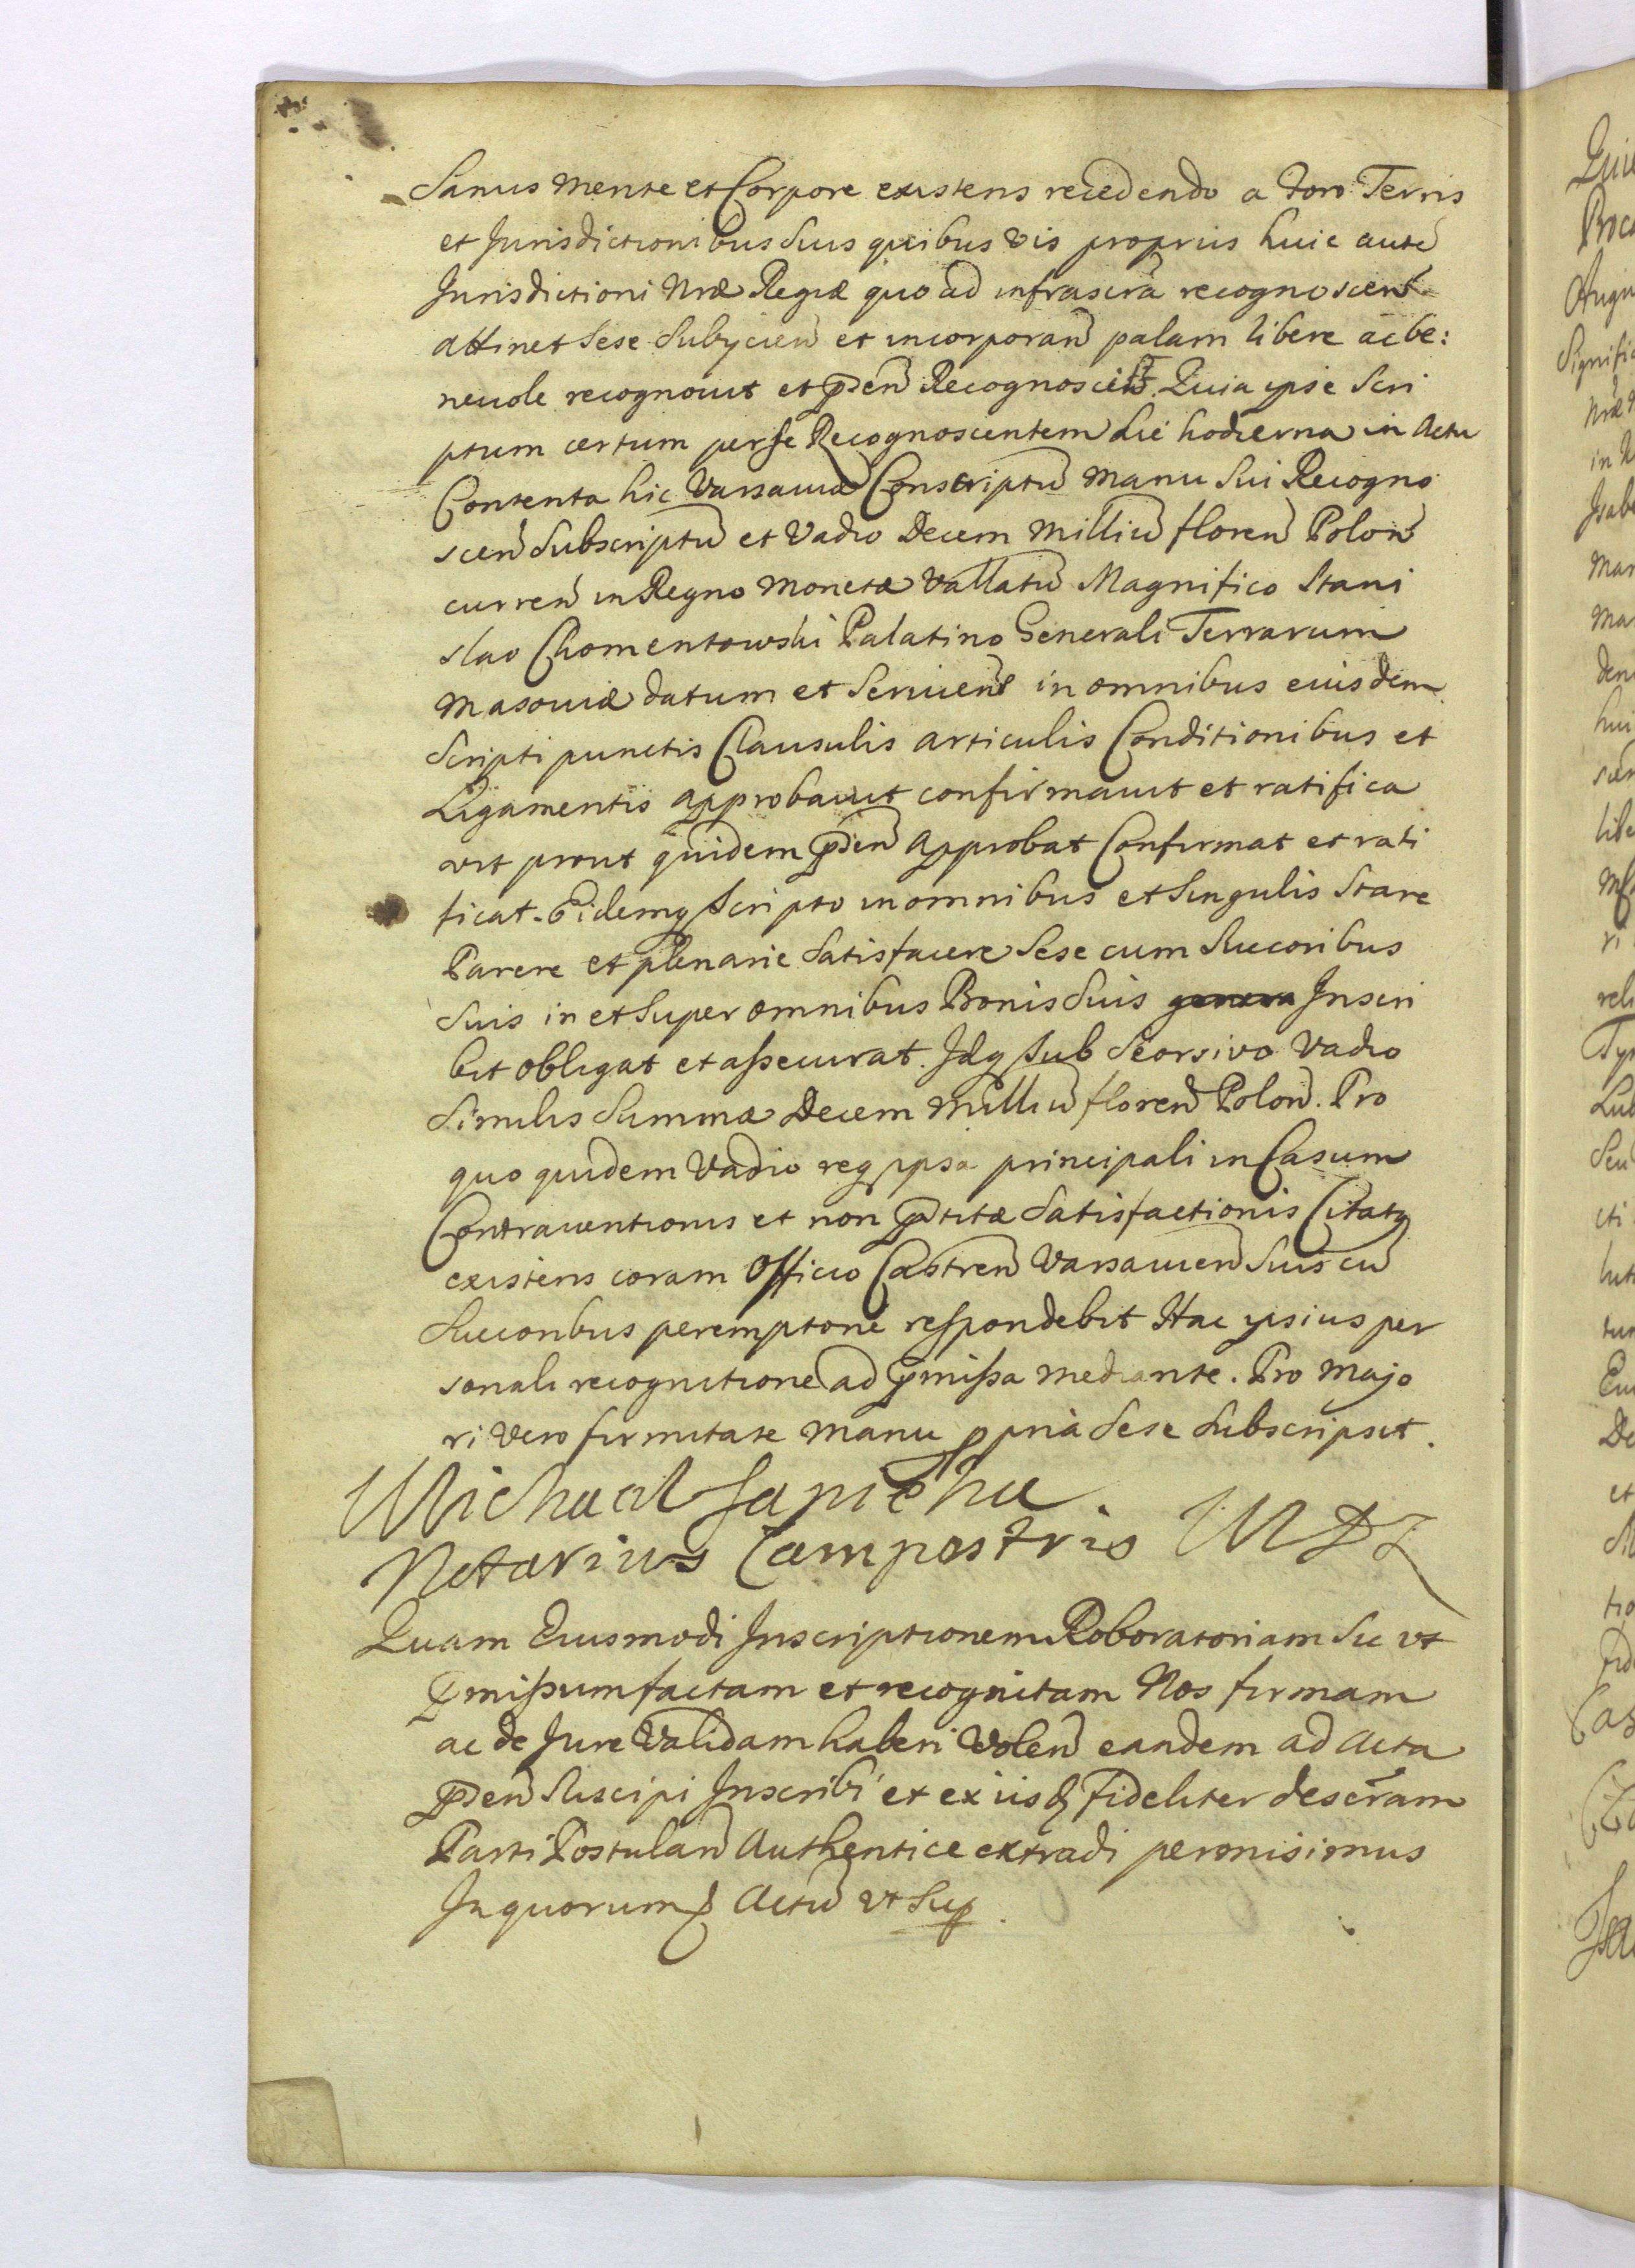 Sanus mente et Corpore existens recedendo a foro Terris
et Jurisdictionibus Suis quibus vis proprijs huic autē
Jurisdictioni Nrae Regiae quo ad infrascrā recognoscen̄
attinet Sese Subijcien̄ et incorporan̄ palam libere ac be:
neuole recognouit et p̄sen̄ Recognoscit. Quia ipse Scri
ptum certum per se Recognoscentem die hodierna in Actu
Contenta hic Varsauiae Conscriptū manu Sui Recogno
scen̄ Subscriptū et Vadio Decem Milliū floren̄ Polon̄
curren̄ in Regno Monetae Vallatū Magnifico Stani
slao Chomentowski Palatino Generali Terrarum
Masouiae datum et Seruiens in omnibus eiusdem
Scripti punctis Clausulis articulis Conditionibus et
Ligamentis approbauit confirmauit et ratifica
vit prout quidem p̄sen̄ approbat Confirmat et rati
ficat. Eidemq Scripto in omnibus et Singulis Stare
Parere et plenarie Satisfacere Sese cum Succoribus
Suis in et Super omnibus Bonis Suis genera Inscri
bit obligat et assecurat. Idq sub Seorsivo Vadio
Similis Summae Decem Milliū floren̄ Polon̄. Pro
quo quidem Vadio req ipsa principali in Casum
Contrauentionis et non p̄stitae Satisfactionis Citatq
existens coram Officio Castren̄ Varsauien̄ Suis cū
Succoribus peremptorie respondebit Hac ipsius per
sonali recognitione ad p̄missa mediante. Pro Majo
ri Vero firmitate Manu ppria Sese Subscripsit.
Michael Sapieha
Notarius Campestris W X L
Quam Eiusmodi Inscriptionem Roboratoriam Sic vt
p̄missum factam et recognitam Nos firmam
ac de Jure Validam haberi Volen̄ eandem ad Acta
p̄sen̄ Suscipi Inscribi et ex iisd fideliter descr̄am
Parti Postulan̄ Authentice extradi permisimus
In quorum Actū vt Sup.